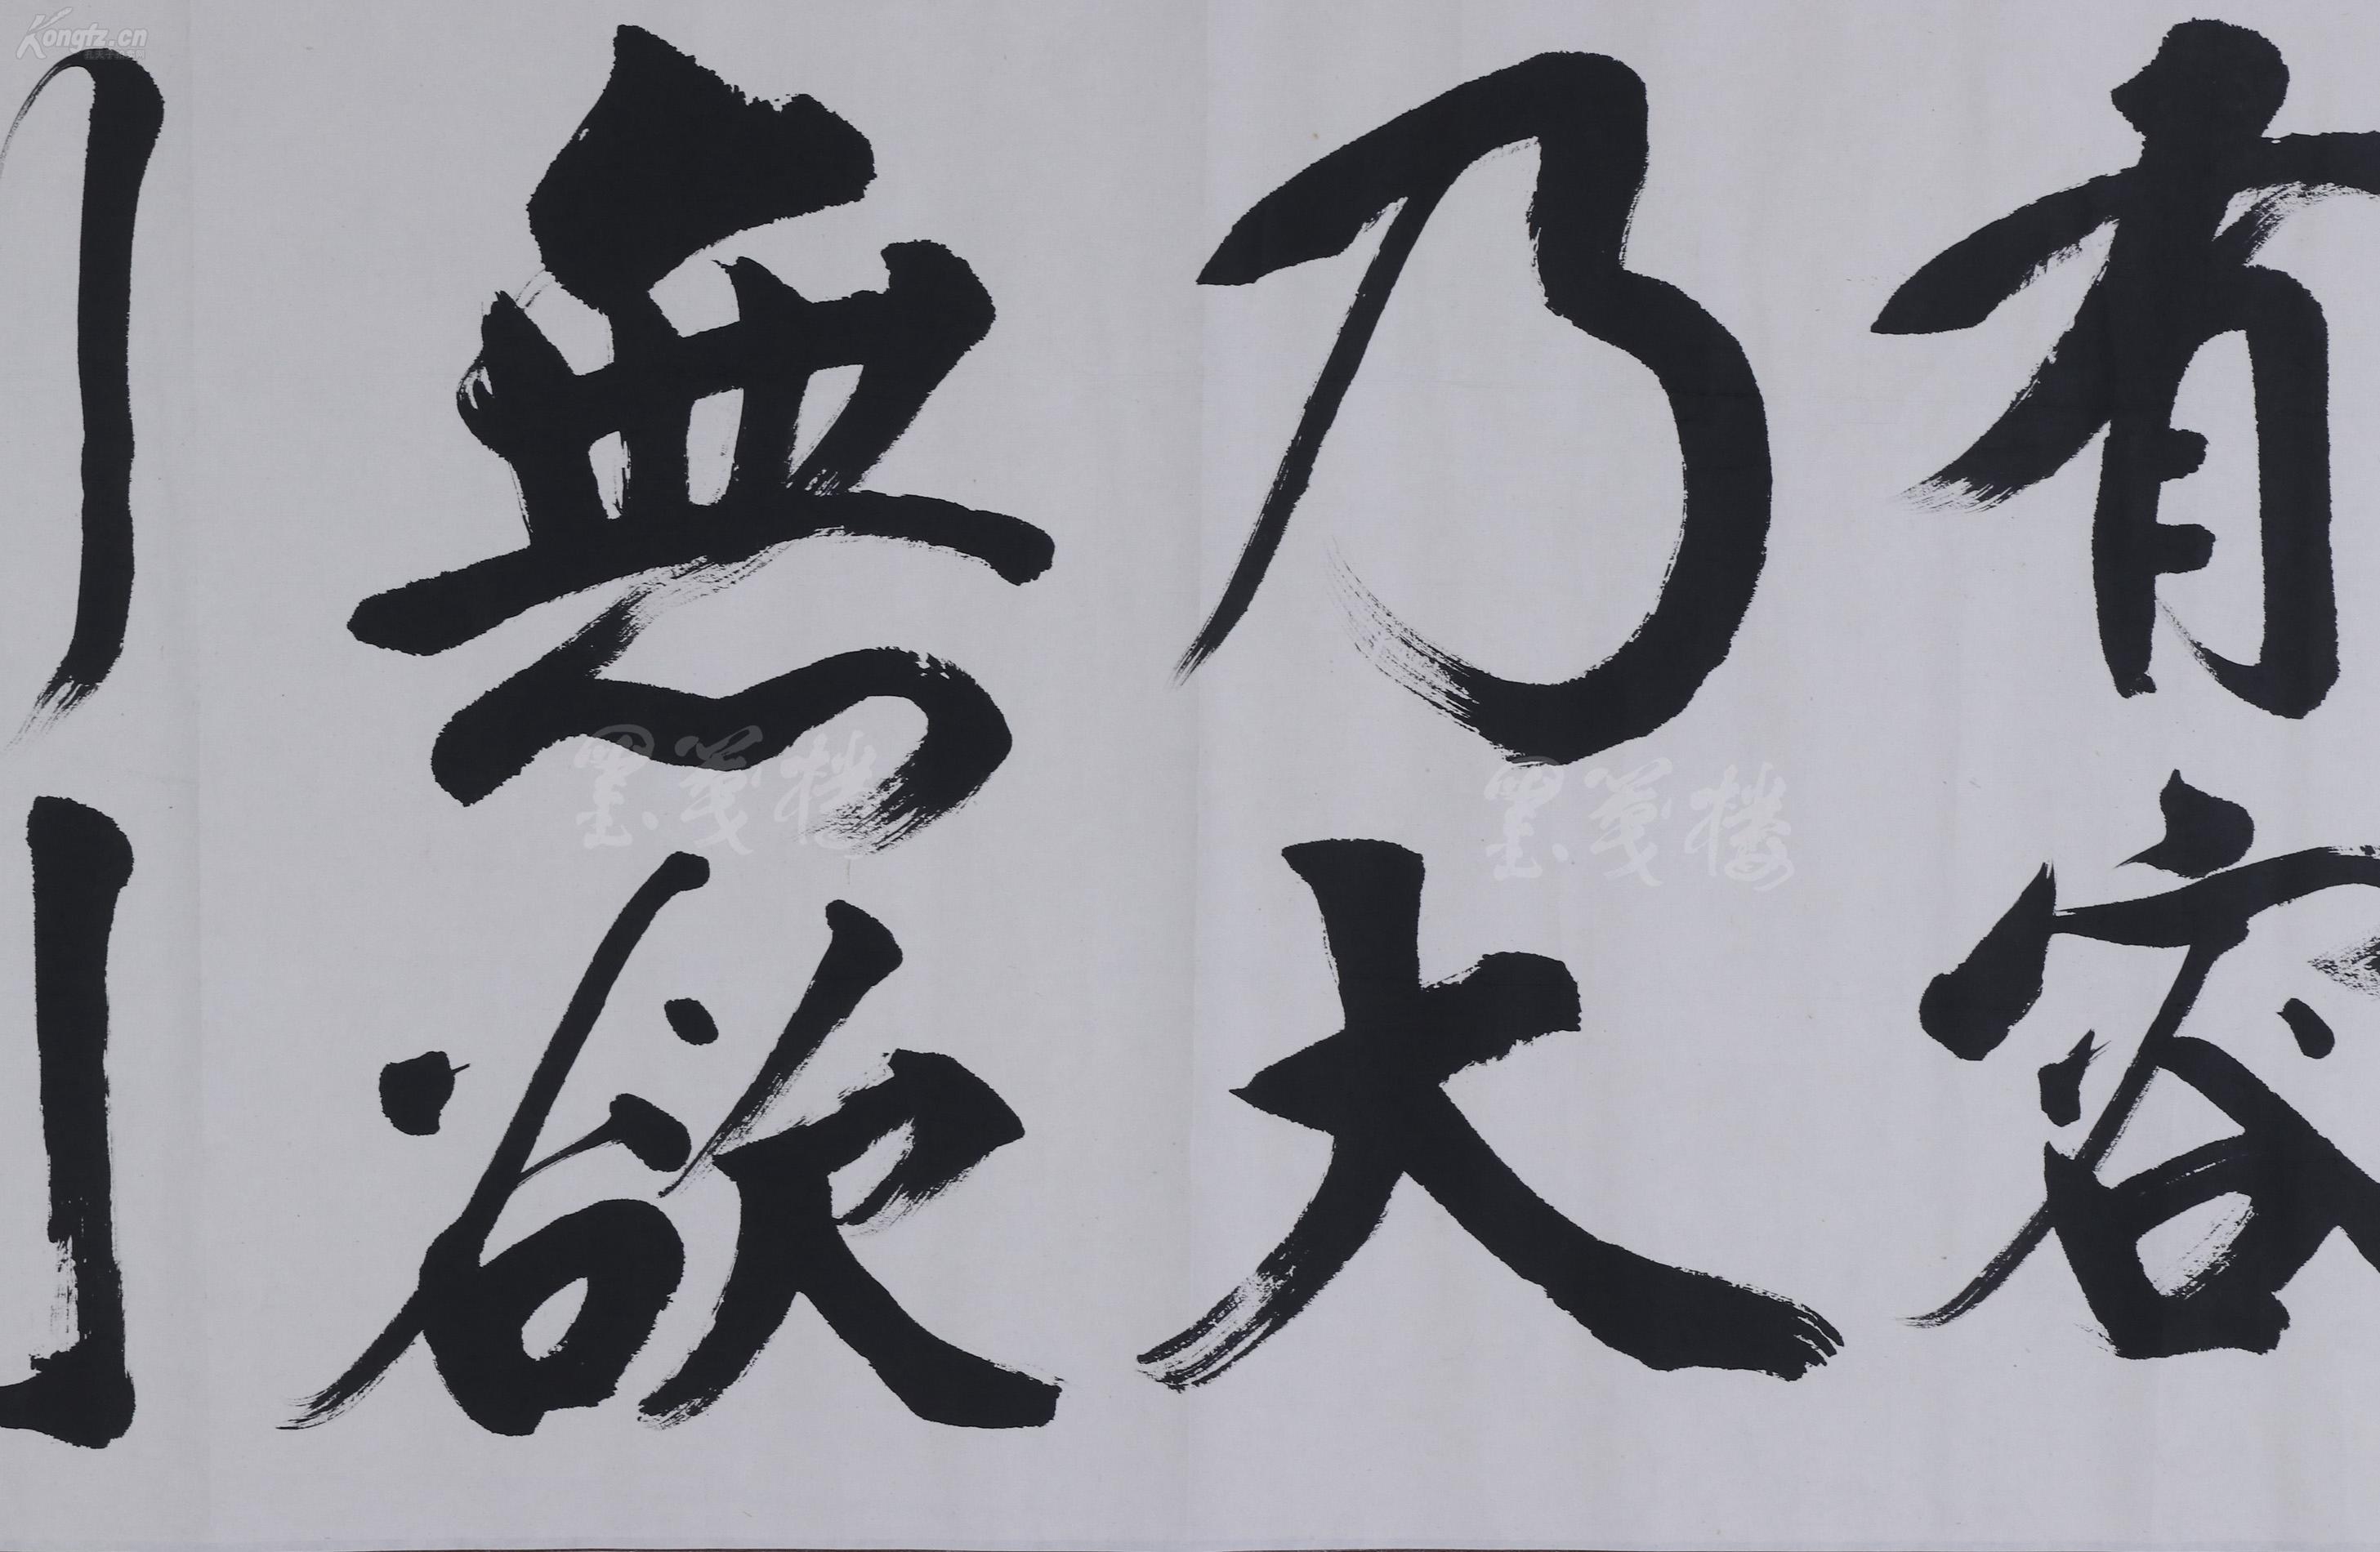 有容
乃大
無欲
Kongfz.cn
墨笺楼
墨笺楼